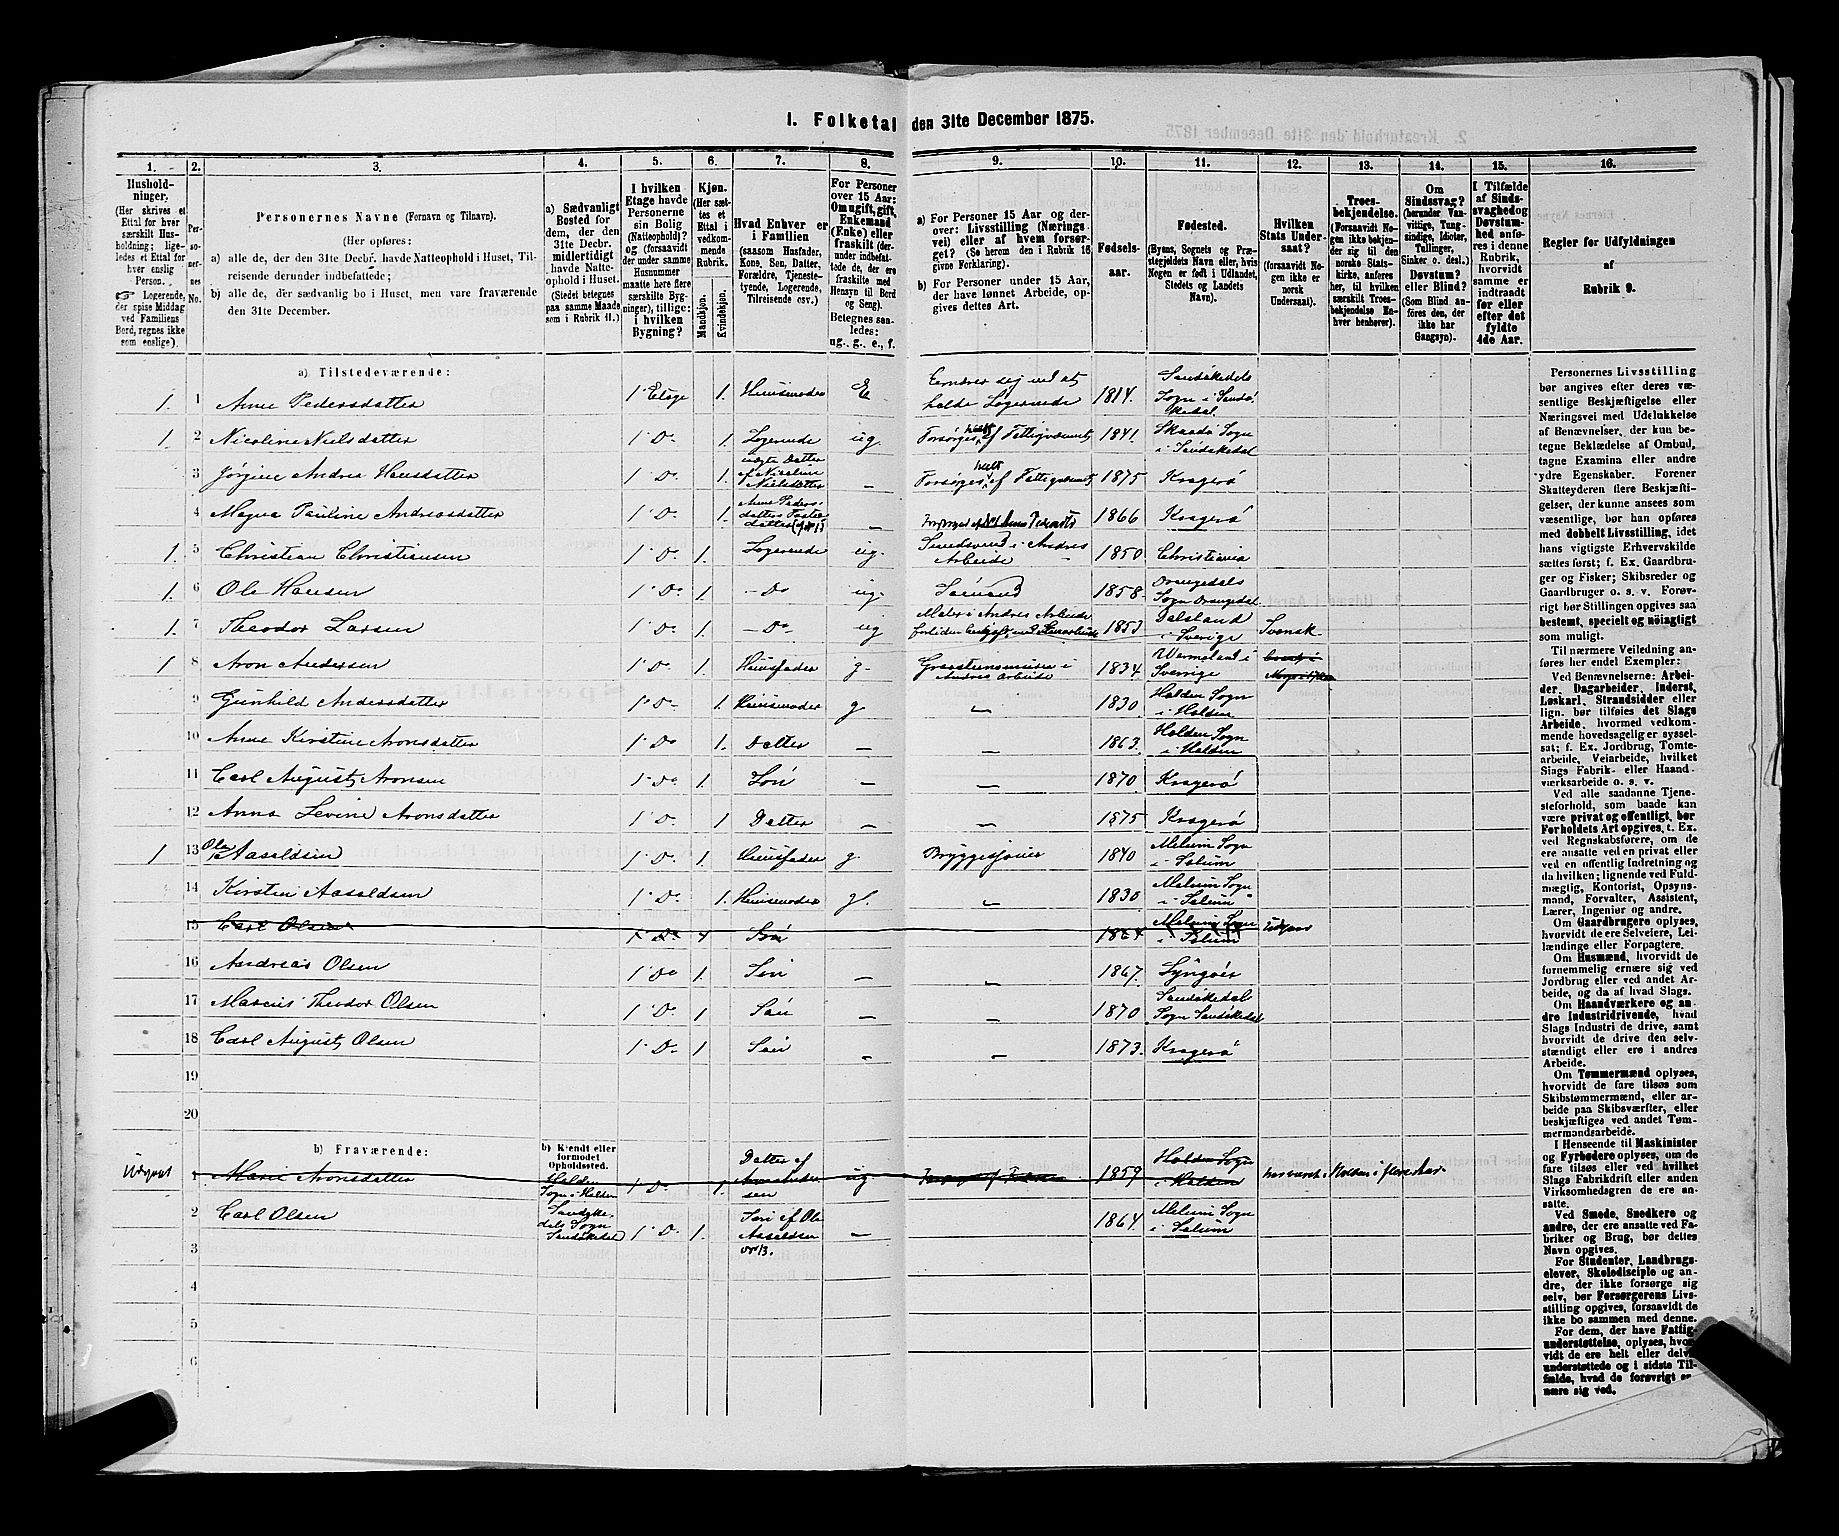 I. Folketal den 31te December 1875.
1. 2. 3. 4. 5. 6. 7. 8. 9. 10. 11. 12. 13. 14. 15. 16.
Husholdninger. (Her skrives et Ettal for hver særskilt Husholdning; ligeledes et Ettal for hver enslig Person. Logerende, der spise Middag ved Familiens Bord, regnes ikke som enslige).
Personernes No.
Personernes Navne (Fornavn og Tilnavn).
(Her opføres:
a) alle de, der den 31te Decbr. havde Natteophold i Huset, Tilreisende derunder indbefattede;
b) alle de, der sædvanlig bo i Huset, men vare fraværende den 31te December.
a) Sædvanligt Bosted for dem, der den 31te Decbr. midlertidigt havde Natteophold i Huset. (Stedet betegnes paa samme Maade som i Rubrik 11.)
I hvilken Etage havde Personerne sin Bolig (Natteophold)? og (forsaavidt der under samme Husnummer maatte høre flere særskilte Bygninger), tillige: i hvilken Bygning?
Kjøn. (Her sættes et Ettal i vedkommende Rubrik.
Mandkjøn.
Kvindekjøn.
Hvad Enhver er i Familien (saasom Husfader, Kone, Søn, Datter, Forældre, Tjenestetyende, Logerende, Tilreisende osv.)
For Personer over 15 Aar: Om ugift, gift, Enkemand (Enke) eller fraskilt (derunder indbefattede de, der ere fraskilte med Hensyn til Bord og Seng). Betegnes saaledes: ug., g., e., f.
a) For Personer 15 Aar og derover: Livsstilling (Næringsvei) eller af hvem forsørget? (Se herom den i Rubrik 16 givne Forklaring).
b) For Personer under 15 Aar, der have lønnet Arbeide, opgives dettes Art.
Fødselsaar.
Fødested. (Byens, Sognets og Præstegjeldets Navn eller, hvis Nogen er født i Udlandet, Stedets og Landets Navn).
Hvilken Stats Undersaat? (forsaavidt Nogen ikke er norsk Undersaat).
Troesbekjendelse. (Forsaavidt Nogen ikke bekjender sig til den norske Statskirke, anføres her, til hvilken særskilt Troesbekjendelse Enhver henhører).
Om Sindssvag? (herunder Vanvittige, Tungsindige, Idioter, Tullinger, Sinker o. desl.) Døvstum? eller Blind? (Som Blind anføres den, der ikke har Gangsyn).
I Tilfælde af Sindssvaghed og Døvstumhed anføres i denne Rubrik, hvorvidt samme er indtraadt før eller efter det fyldte 4de Aar.
Regler for Udfyldningen af Rubrik 9.
a) Tilstedeværende:
1. 1 Anne Pedersdatter 1 Etage 1. Huusmoder E Ernærer sig ved at holde Logerende 1814. Sandøkedels Sogn i Sandøkedal.
1. 2 Nicoline Nielsdatter 1 Do 1. Logerende ug Forsørges helt af Fattigvæsenet 1841. Skaadø Sogn i Sandøkedal
3 Jørgine Andrea Hansdatter 1 Do 1. uægte Datter af Nicoline Nielsdatter — Forsørges helt af Fattigvæsenet 1875 Kragerø
4 Magna Pauline Andreasdatter 1 Do 1. Anne Pedersdatters Datter datter — 1866 Kragerø
1. 5 Christian Christiansen 1 Do 1. Logerende ug. i Andres Arbeide 1850. Christiania
1. 6 Ole Hansen 1 Do 1. — Do ug. Sømand 1858. Drangedals Sogn Drangedal
1. 7 Theodor Larsen 1 Do 1. — Do ug Maler i Andres Arbeide fortiden beskjæft. med 1853 Dalsland i Sverige Svensk
1 8 Aron Andersen 1 Do 1. Huusfader g. i Andres Arbeide 1834. Wermeland i Sverige
9 Gunhild Andersdatter 1 Do 1. Huusmoder g. — 1830. Holden Sogn i Holden
10 Anne Kirstine Aronsdatter 1 Do 1. Datter — — 1863. Holden Sogn i Holden
11 Carl August Aronsen 1 Do 1 Søn — — 1870. Kragerø
12 Anna Levine Aronsdatter 1 Do 1 Datter — — 1875 Kragerø
1 13 Ole Aasoldsen 1 Do 1. Huusfader g. Bryggesjouer 1840 Melum Sogn i Solum
14 Kirsten Aasoldsen 1 Do 1. Huusmoder g. — 1830 Melum Sogn i Solum
15 Carl Olsen 1 Do 1 Søn 1864 Melum Sogn i Solum
16 Andreas Olsen 1 Do 1 Søn — — 1867. Lyngøer
17 Marcus Theodor Olsen 1 Do 1 Søn — — 1870 Sandøkedal Sogn Sandøkedal
18 Carl August Olsen 1 Do 1 Søn — — 1873. Kragerø
19
20
b) Fraværende:
b) Kjendt eller formodet Opholdssted.
1 Marie Aronsdatter Holden Sogn i Holden 1 Do 1. Datter af Aron Andersen ug 1859 Holden Sogn i Holden
2 Carl Olsen Sandøkedels Sogn Sandøkedal 1 Do 1. Søn af Ole Aasoldsen No 13. — 1864. Melum Sogn i Solum
3
4
5
6
Personernes Livsstilling bør angives efter deres væsentlige Beskjæftigelse eller Næringsvei med Udelukkelse af Benævnelser, der kun betegne Beklædelse af Ombud, tagne Examina eller andre ydre Egenskaber. Forener Skatteyderen flere Beskjæftigelser, der kunne ansees som væsentlige, bør han opføres med dobbelt Livsstilling, idet hans vigtigste Erhvervskilde sættes først; f. Ex. Gaardbruger og Fisker; Skibsreder og Gaardbruger o. s. v. Forøvrigt bør Stillingen opgives saa bestemt, specielt og nøiagtigt som muligt.
Til nærmere Veiledning anføres her endel Exempler:
Ved Benævnelserne: Arbeider, Dagarbeider, Inderst, Løskarl, Strandsidder eller lign. bør tilføies det Slags Arbeide, hvormed vedkommende hovedsagelig er sysselsat; f. Ex. Jordbrug, Tomtearbeide, Veiarbeide, hvilket Slags Fabrik- eller Haandværksarbeide o. s. v.
Ved alle saadanne Tjenesteforhold, som baade kan være privat og offentligt, bør Forholdets Art opgives, t. Ex. ved Regnskabsførere, om de ere ansatte ved en privat eller ved en offentlig Indretning og da hvilken; lignende ved Fuldmægtig, Kontorist, Opsynsmand, Forvalter, Assistent, Lærer, Ingeniør og andre.
Om Gaardbrugere oplyses, hvorvidt de ere Selveiere, Leilændinge eller Forpagtere.
Om Husmænd, hvorvidt de fornemmelig ernære sig ved Jordbrug eller ved andet Arbeide, og da af hvad Slags.
Om Haandværkere og andre Industridrivende, hvad Slags Industri de drive, samt hvorvidt de drive den selvstændigt eller ere i andres Arbeide.
Om Tømmermænd oplyses, hvorvidt de fare tilsøs som Skibstømmermænd, eller arbeide paa Skibsværfter, eller beskjæftiges ved andet Tømmermandsarbeide.
I Henseende til Maskinister og Fyrbødere oplyses, om de fare tilsøs eller ved hvilket Slags Fabrikdrift eller anden Virksomhedsgren de ere ansatte.
Ved Smede, Snedkere og andre, der ere ansatte ved Fabriker og Brug, bør dettes Navn opgives.
For Studenter, Landbrugselever, Skoledisciple og andre, der ikke forsørge sig selv, bør Forsørgerens Livsstilling opgives, forsaavidt de ikke bo sammen med denne.
For dem, der have Fattigunderstøttelse, oplyses, hvorvidt de ere helt eller delvis understøttede og i sidste Tilfælde, hvad de forøvrigt ernære sig ved.